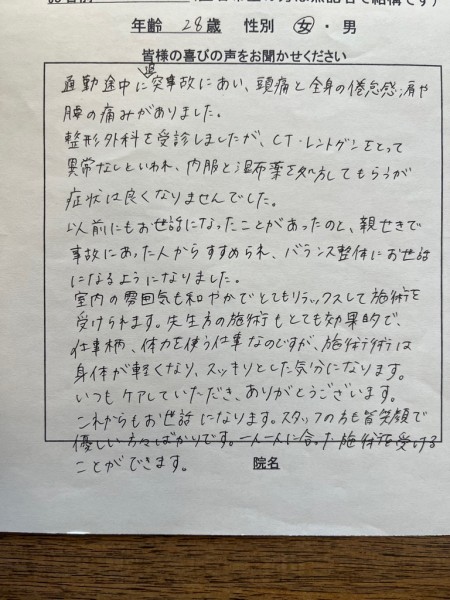 年齢 28歳 性別 女・男
皆様の喜びの声をお聞かせください
通勤途中に追突事故にあい、頭痛と全身の倦怠感、肩や
腰の痛みがありました。
整形外科を受診しましたが、CT・レントゲンをとって
異常なしといわれ、内服と湿布薬を処方してもらうが
症状は良くなりませんでした。
以前にもお世話になったことがあったのと、親せきで
事故にあった人からすすめられ、バランス整体にお世話
になるようになりました。
室内の雰囲気も和やかでとてもリラックスして施術を
受けられます。先生方の施術もとても効果的で、
仕事柄、体力を使う仕事なのですが、施術後は
身体が軽くなり、スッキリとした気分になります。
いつもケアしていただき、ありがとうございます。
これからもお世話になります。スタッフの方も皆笑顔で
優しい方々ばかりです。一人一人に合った施術を受ける
ことができます。
院名